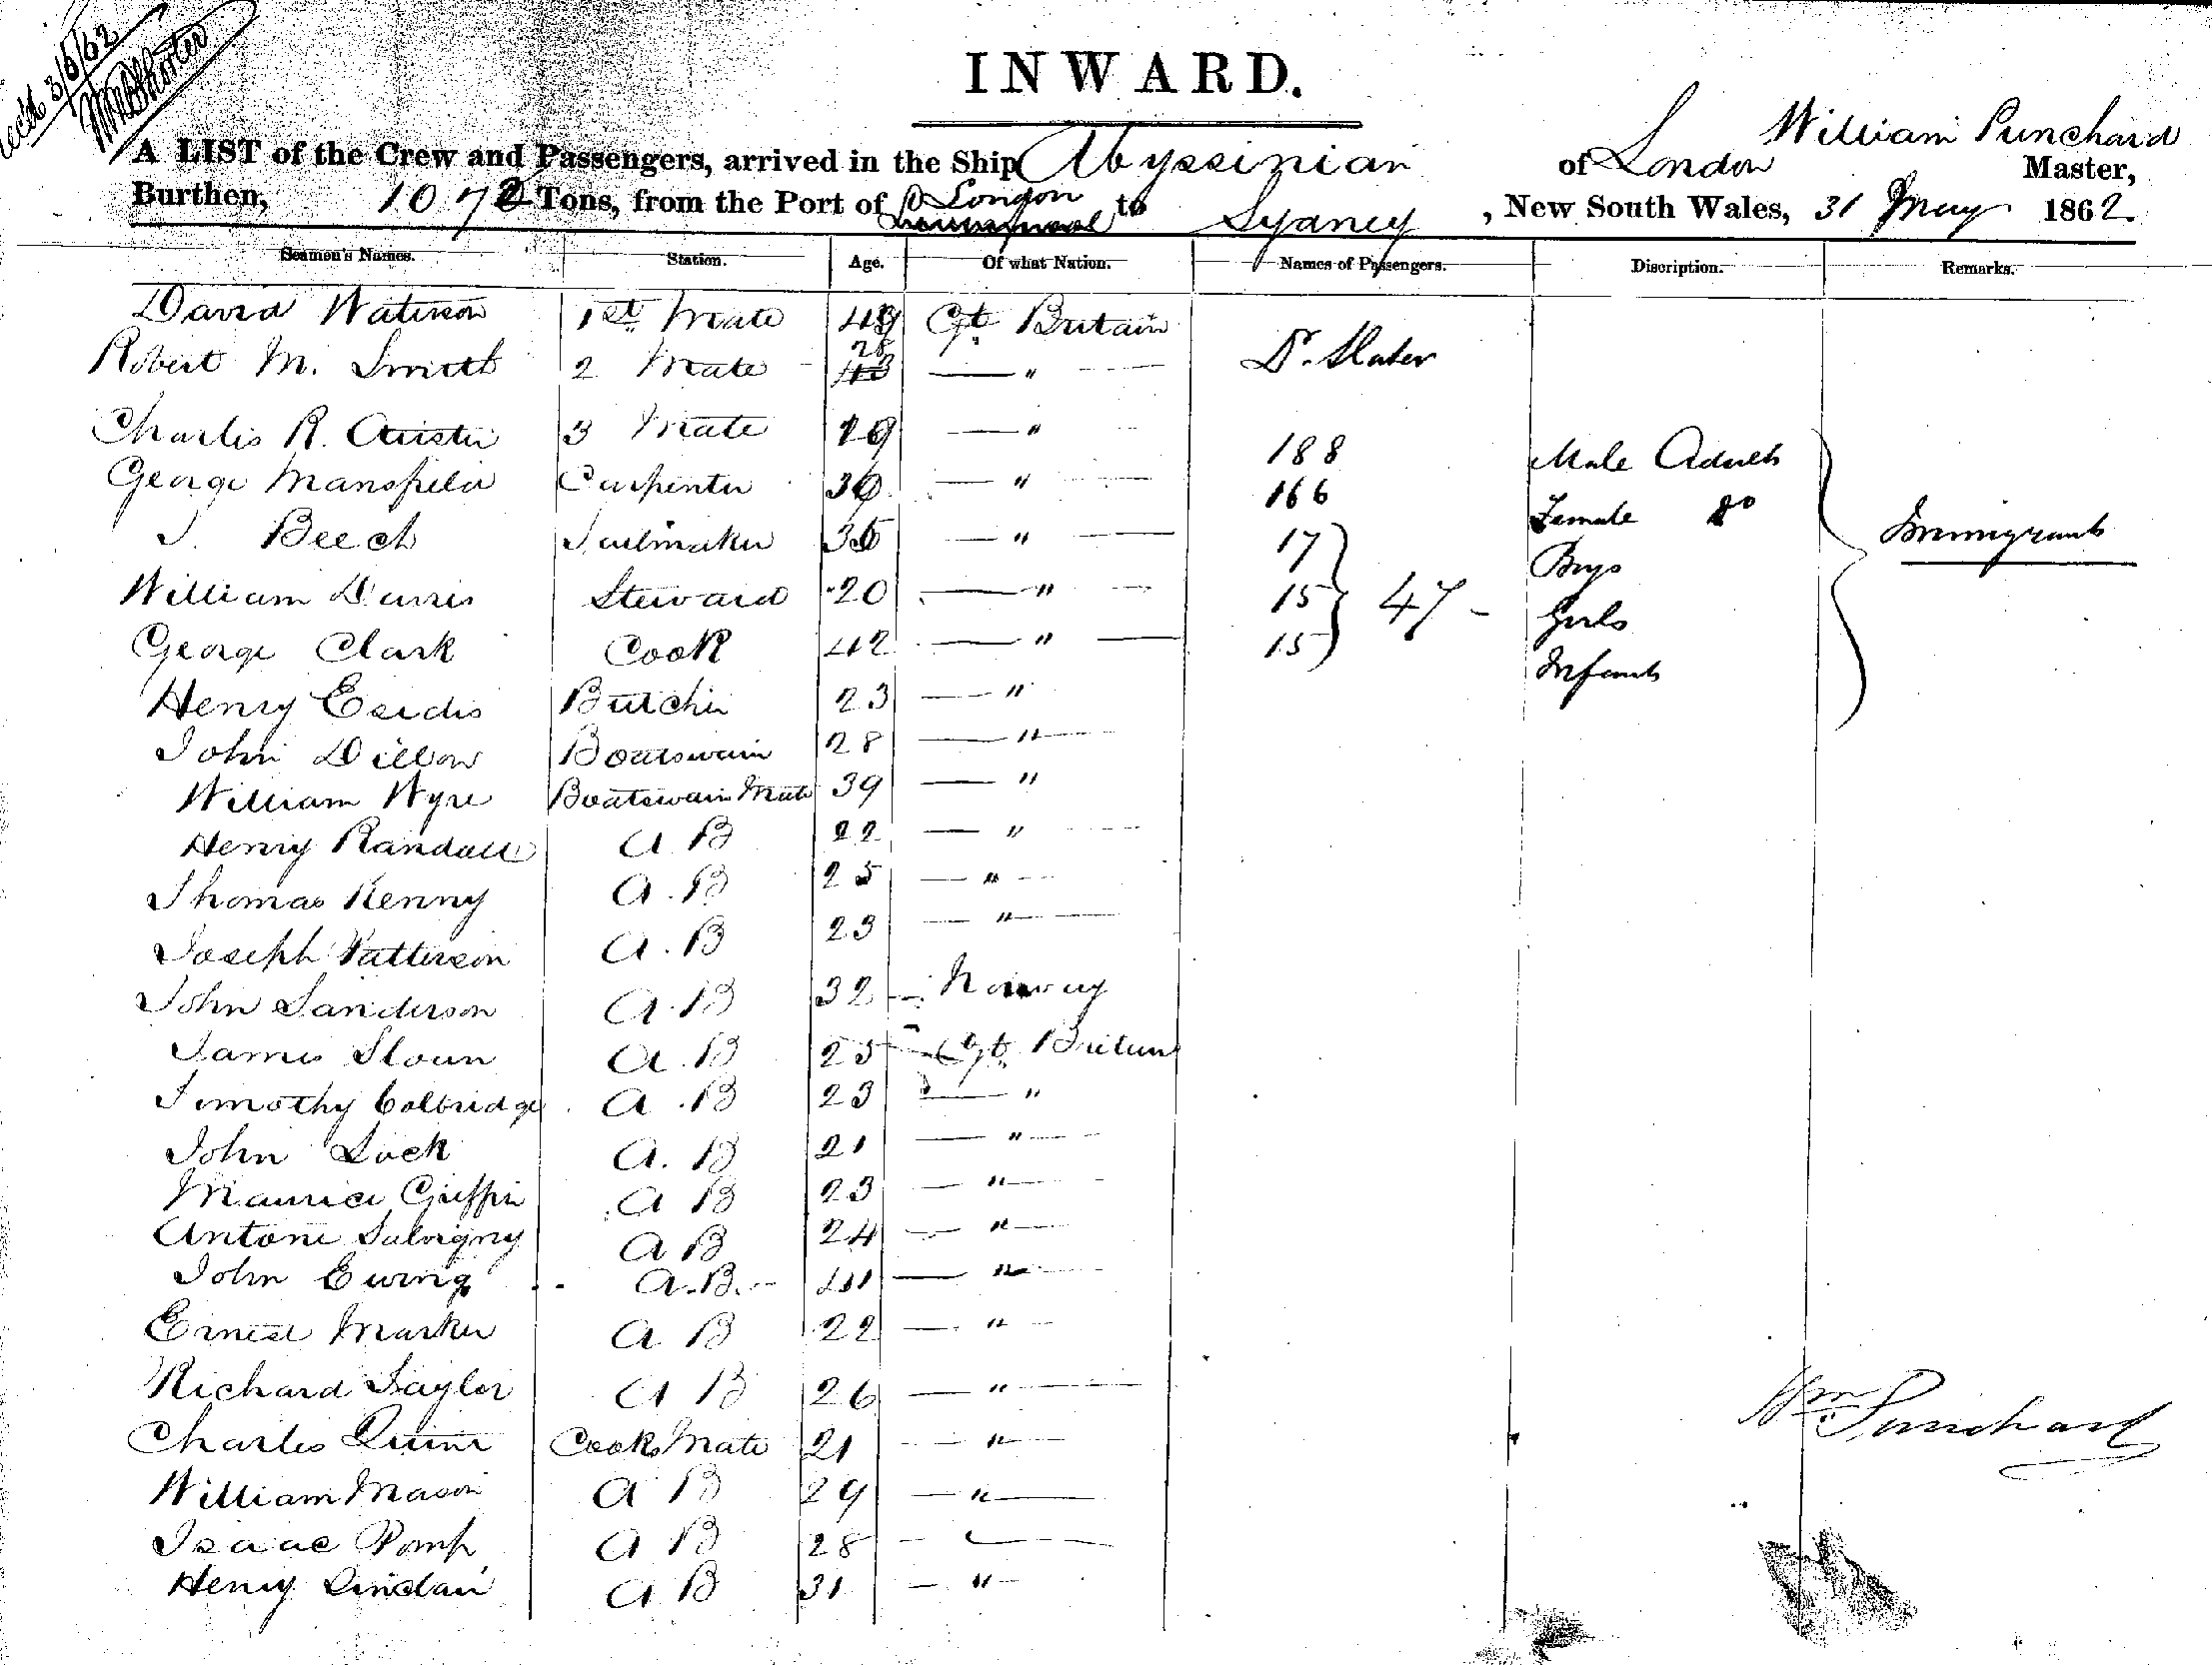 3/6/62
INWARD.
William Punchard
A LIST of the Crew and Passengers, arrived in the Ship Abyssinian of London Master,
Burthen, 1072 Tons, from the Port of London to Sydney, New South Wales, 31 May 1862.
Seamen's Names. Station. Age. Of what Nation. Names of Passengers. Discription. Remarks.
David Waterson 1st Mate 49 Gt. Britain
Robert M. Smith 2 Mate 28 — " — Dr. Slater
Charles R. Austin 3 Mate 19 — " 188 Male Adults
George Mansfield Carpenter 36 — " — 166 Female Do
J. Beech Sailmaker 35 — " — 17 Boys Immigrants
William Davies Steward 20 — " — 15 47 - Girls
George Clark Cook 42 — " — 15 Infants
Henry Butcher 23 — "
John Dillon Boatswain 28 — " —
William Wyre Boatswain Mate 39 — "
Henry Randall A B 22 — " —
Thomas Kenny A. B 25 — " —
Joseph Patterson A. B 23 — " —
John Sanderson A. B 32 — Norway
James Sloan A. B 25 Gt. Britain
Timothy Colbridge A. B 23 — "
John Lock A. B 21 — " —
Maurice Griffin A B 23 — " —
Antoni Salvigny A B 24 — " —
John Ewing A.B. 41 — " —
Ernest Marker A B 22 — " —
Richard Taylor A B 26 — " —
Charles Quinn Cooks Mate 21 — " —
Wm Punchard
William Mason A B 29 — " —
Isaac Pomp A B 28 — " —
Henry Sinclair A B 31 — " —